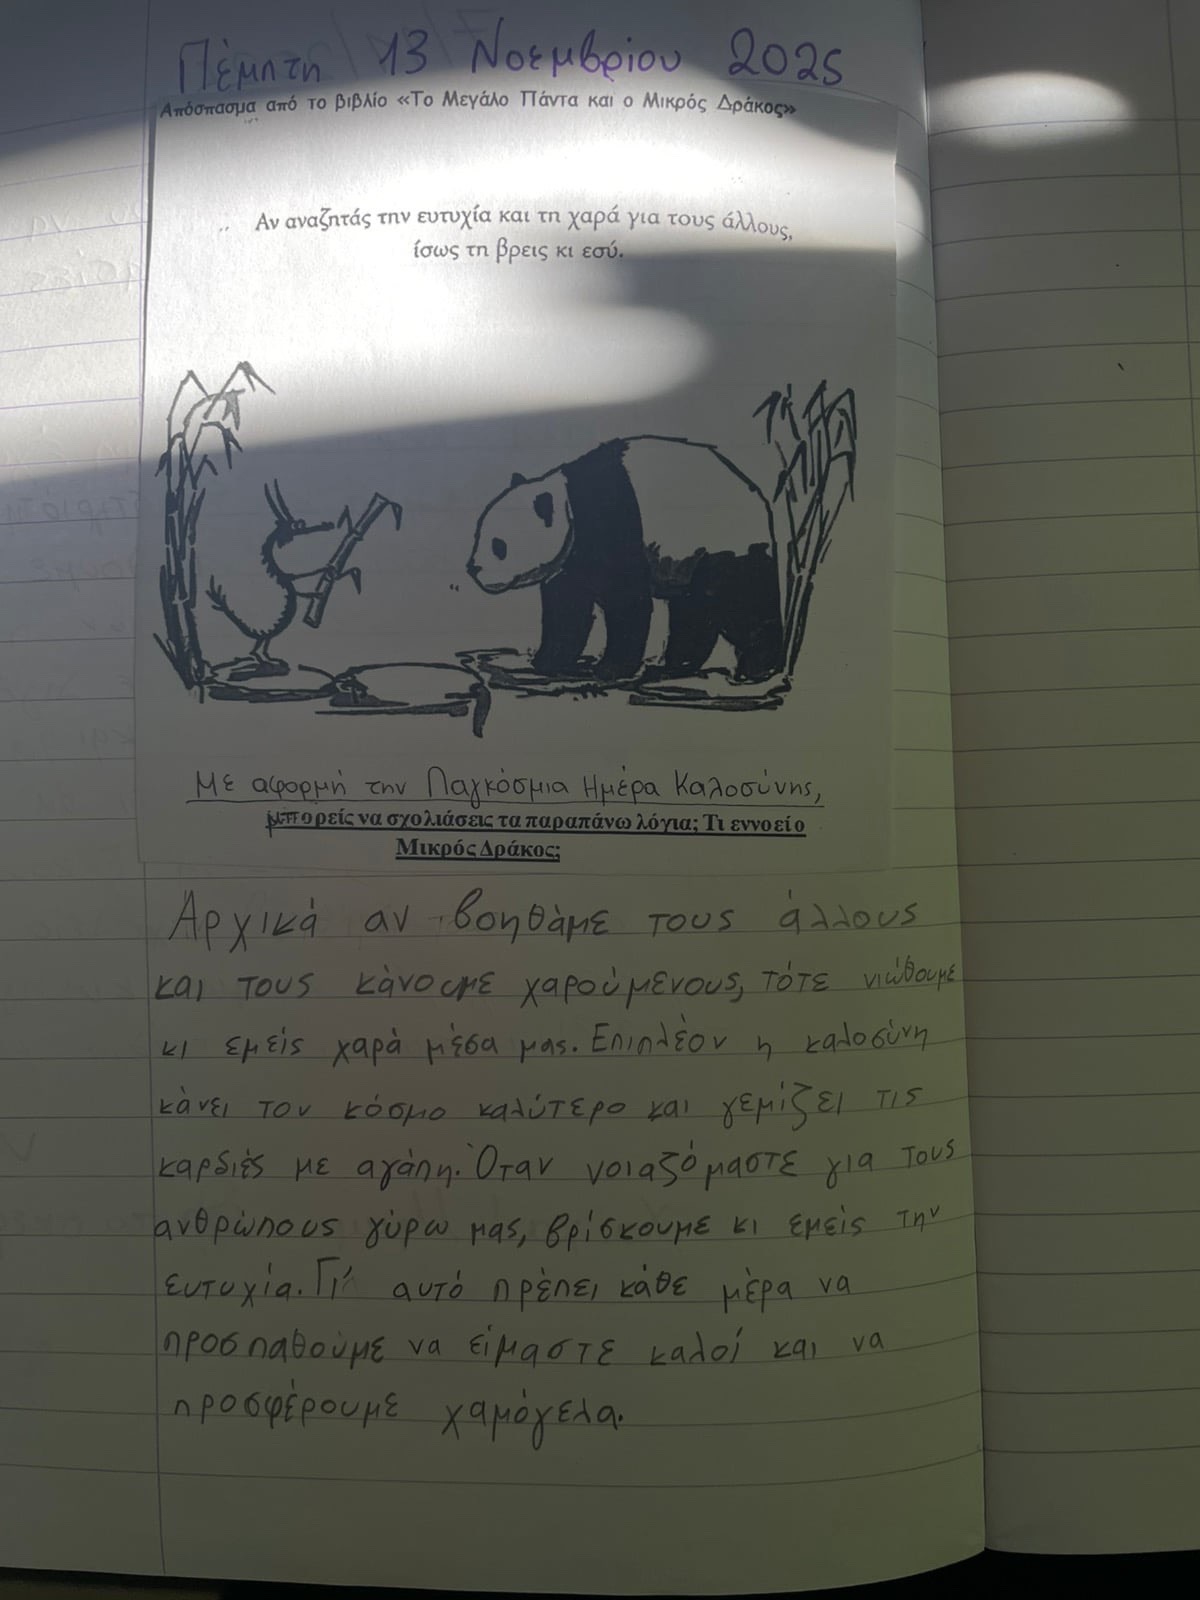 Πέμπτη 13 Νοεμβρίου 2025
Απόσπασμα από το βιβλίο «Το Μεγάλο Πάντα και ο Μικρός Δράκος»
Αν αναζητάς την ευτυχία και τη χαρά για τους άλλους,
ίσως τη βρεις κι εσύ.
Με αφορμή την Παγκόσμια Ημέρα Καλοσύνης,
μπορείς να σχολιάσεις τα παραπάνω λόγια; Τι εννοεί ο
Μικρός Δράκος;
Αρχικά αν βοηθάμε τους άλλους
και τους κάνουμε χαρούμενους, τότε νιώθουμε
κι εμείς χαρά μέσα μας. Επιπλέον η καλοσύνη
κάνει τον κόσμο καλύτερο και γεμίζει τις
καρδιές με αγάπη. Όταν νοιαζόμαστε για τους
ανθρώπους γύρω μας, βρίσκουμε κι εμείς την
ευτυχία. Γι' αυτό πρέπει κάθε μέρα να
προσπαθούμε να είμαστε καλοί και να
προσφέρουμε χαμόγελα.